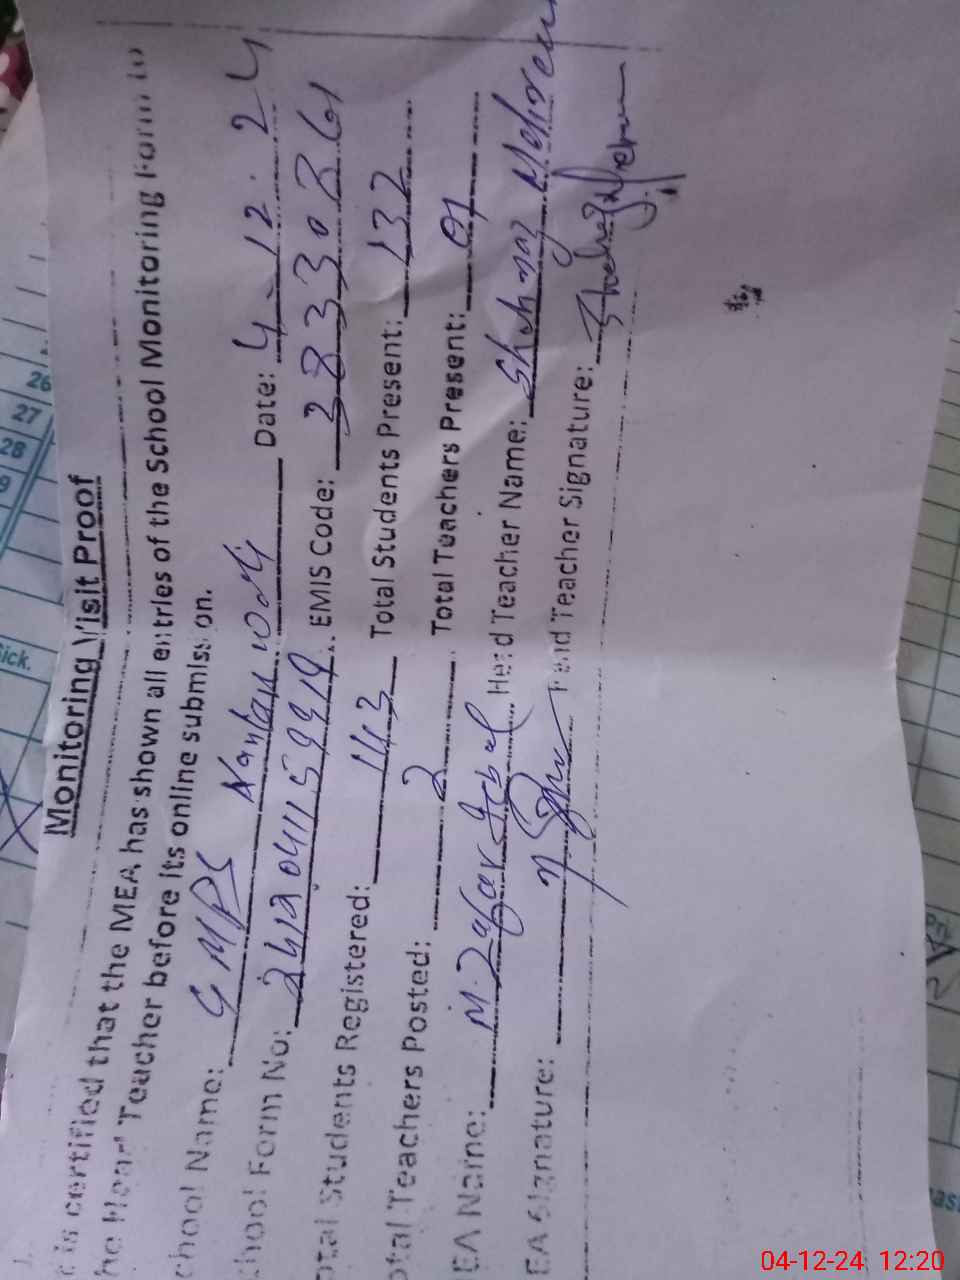 Monitoring Visit Proof
is certified that the MEA has shown all entries of the School Monitoring Form to
he Head Teacher before its online submission.
chool Name: GMPS Date: 4-12-24
chool Form No: EMIS Code:
otal Students Registered: 143 Total Students Present: 132
otal Teachers Posted: 2 Total Teachers Present: 01
EA Name: M. Zafar Iqbal Head Teacher Name: Shahnaz
EA Signature: Head Teacher Signature:
26
27
28
9
ick.
Pri
04-12-24 12:20